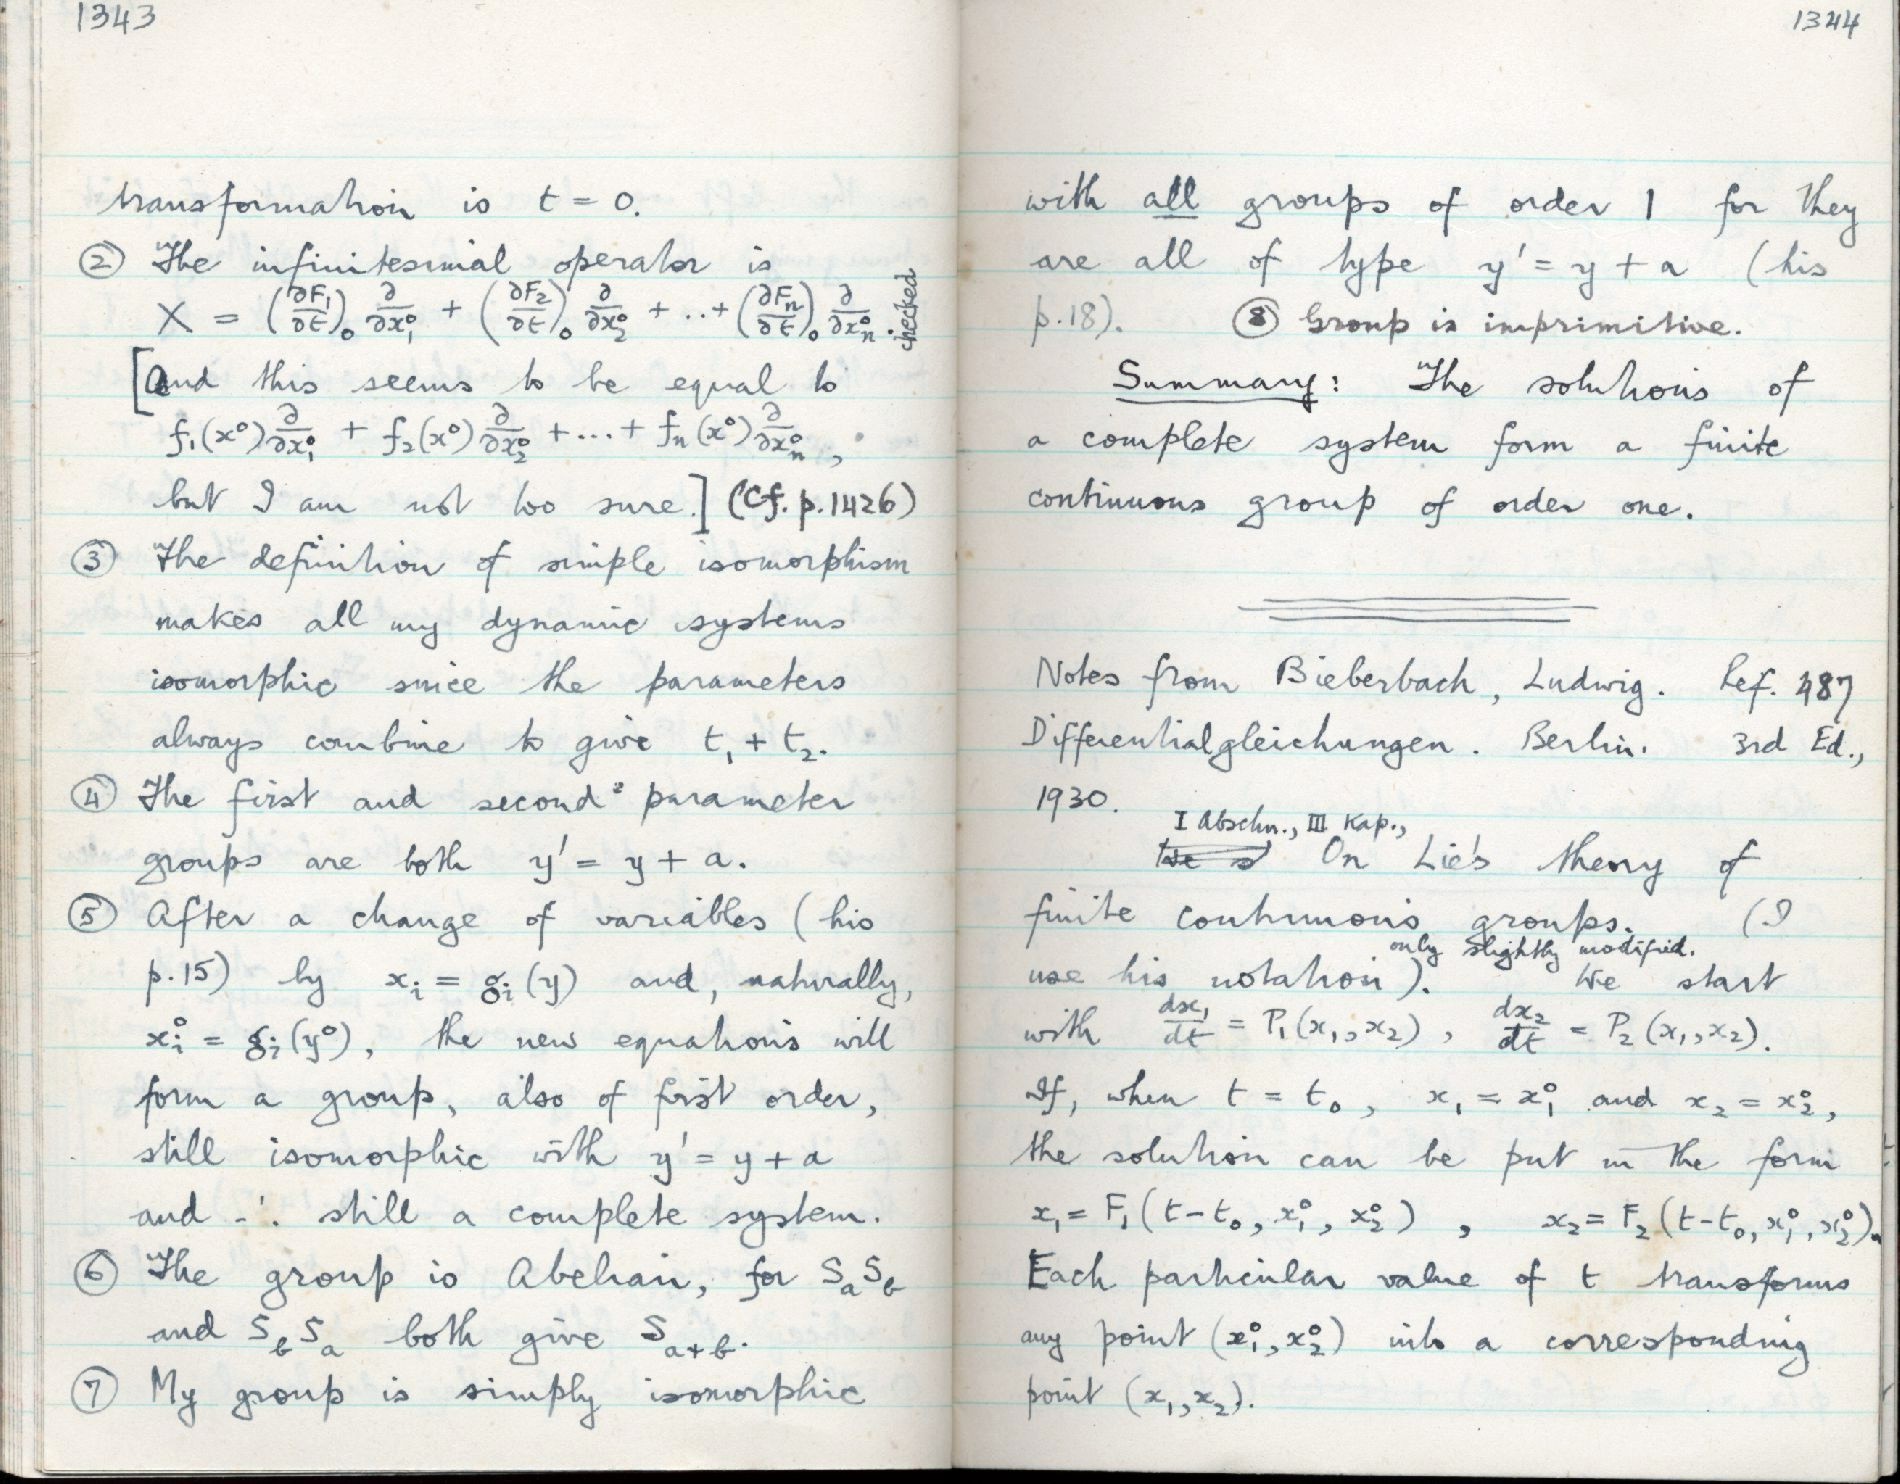 1343
transformation is t = 0.
② The infinitesimal operator is
X = (∂F₁/∂t)₀ ∂/∂x₁⁰ + (∂F₂/∂t)₀ ∂/∂x₂⁰ + ..+ (∂Fₙ/∂t)₀ ∂/∂xₙ⁰. checked
[and this seems to be equal to
f₁(x⁰) ∂/∂x₁⁰ + f₂(x⁰) ∂/∂x₂⁰ +...+ fₙ(x⁰) ∂/∂xₙ⁰,
but I am not too sure.] (Cf. p.1426)
③ The definition of simple isomorphism
makes all my dynamic systems
isomorphic since the parameters
always combine to give t₁ + t₂.
④ The first and second parameter
groups are both y' = y + a.
⑤ After a change of variables (his
p.15) by xᵢ = gᵢ(y) and, naturally,
xᵢ⁰ = gᵢ(y⁰), the new equations will
form a group, also of first order,
still isomorphic with y' = y + a
and ∴ still a complete system.
⑥ The group is Abelian, for SₐS_b
and S_bSₐ both give S_{a+b}.
⑦ My group is simply isomorphic
1344
with all groups of order 1 for they
are all of type y' = y + a (his
p.18). ⑧ Group is imprimitive.
Summary: The solutions of
a complete system form a finite
continuous group of order one.
Notes from Bieberbach, Ludwig. Ref. 487
Differentialgleichungen. Berlin. 3rd Ed.,
1930.
I Abschn., III Kap.,
We s On Lie's theory of
finite continuous groups. (I
only slightly modified.
use his notation). We start
with dx₁/dt = P₁(x₁,x₂), dx₂/dt = P₂(x₁,x₂).
If, when t = t₀, x₁ = x₁⁰ and x₂ = x₂⁰,
the solution can be put in the form
x₁ = F₁(t-t₀, x₁⁰, x₂⁰), x₂ = F₂(t-t₀, x₁⁰, x₂⁰).
Each particular value of t transforms
any point (x₁⁰,x₂⁰) into a corresponding
point (x₁,x₂).